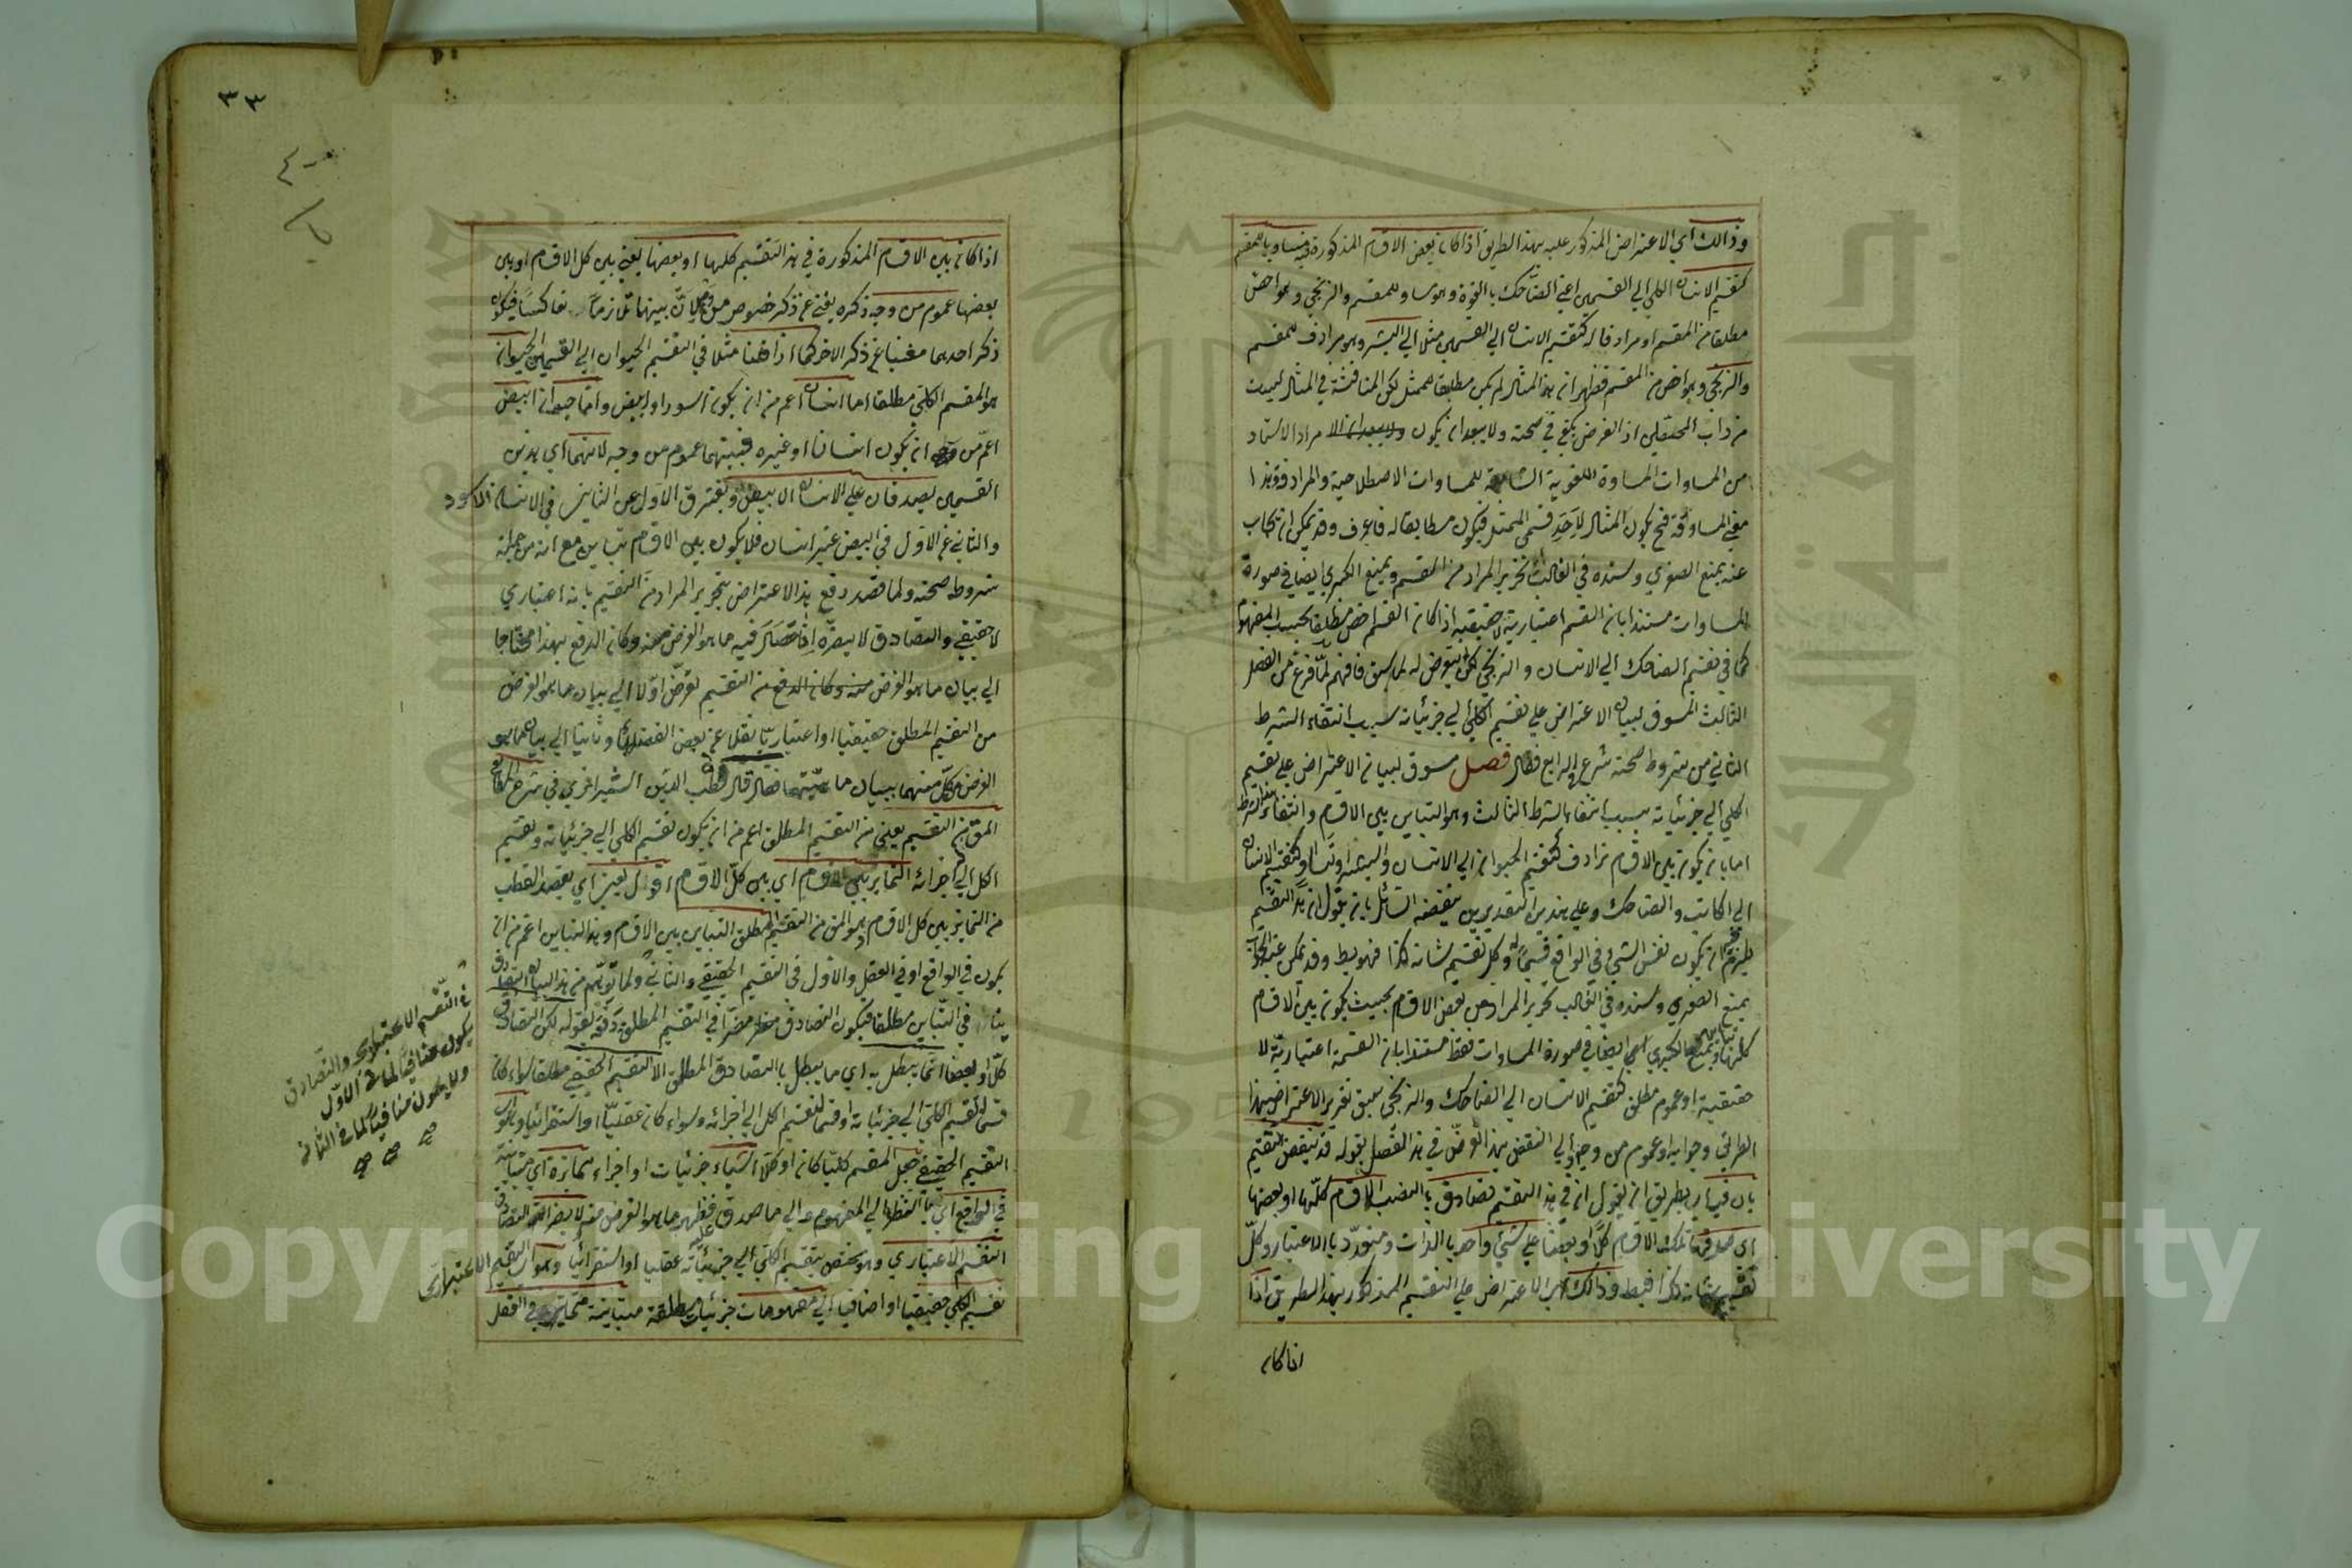 وذالك اي الاعتراض المذكور عليه بهذا الطريق اذا كان بعض الاقسام المذكورة فيه مساويا للمقسم
كتقسيم الانسان الكلي الي القسمين اعني الضاحك بالقوة وهو مساو للمقسم والزنجي وهو اخص
مطلقا من المقسم او مرادفا له كتقسيم الانسان الي القسمين مثل الي البشر وهو مرادف للمقسم
والزنجي وهو اخص من المقسم فظهر ان هذا المثال لم يكن مطابقا للممثل لكن المناقشة في المثال ليست
من داب المحصلين اذ الفرض يكفي في صحته ولا يبعد ان يكون مراد الاستاد
من المساوات المساوة اللغوية الشاملة للمساوات الاصطلاحية والمرادفة وهذا
معني المساوقة فح يكون المثال لاحد قسمي الممثل فيكون مطابقا له فاعرف وقد يمكن ان يجاب
عنه بمنع الصغري وسنده في الغالب تحرير المراد من المقسم ويمنع الكبري ايضا في صورة
المساوات مستندا بان القسم اعتبارية لا حقيقية اذا كان القسم اخص مطلقا بحسب المفهوم
كما في تقسيم الضاحك الي الانسان والزنجي لكن لم يتعرض له لما سبق فافهم لما فرغ من الفصل
الثالث المسوق لبيان الاعتراض علي تقسيم الكلي الي جزئياته بسبب انتفاء الشرط
الثاني من شروط صحته شرع في الرابع فقال فصل مسوق لبيان الاعتراض علي تقسيم
الكلي الي جزئياته بسبب انتفاء الشرط الثالث وهو التباين بين الاقسام وانتفاء هذا الشرط
اما بان يكون بين الاقسام ترادف كتقسيم الحيوان الي الانسان والبشر او تساو كتقسيم الانسان
الي الكاتب والضاحك وعلي هذين التقديرين ينقضه السائل بان يقول ان هذا التقسيم
يلزم ان يكون نفس الشيء في الواقع قسيما له وكل تقسيم شانه كذا فهو بط وقد يمكن عنه الجواب
بمنع الصغري وسنده في الغالب تحرير المراد من بعض الاقسام بحيث يكون بين الاقسام
كلها تباين ويمنع الكبري ايضا في صورة المساوات فقط مستندا بان القسمة اعتبارية لا
حقيقية او عموم مطلق كتقسيم الانسان الي الضاحك والزنجي سبق تقرير الاعتراض بهذا
الطرائق وجوابه او عموم من وجه والي النقض بهذا تعرض في هذا الفصل بقوله قد ينقض التقسيم
بان فيه اي بطريق ان يقول ان في هذا التقسيم تصادق الاقسام كلها او بعضها
اي صدق تلك الاقسام كلا او بعضا علي شيء واحد بالذات ومتعدد بالاعتبار وكل
تقسيم شانه كذا فبط وذالك اي الاعتراض علي التقسيم المذكور بهذا الطريق اذا
اذا كان
٣٣
اذا كان بين الاقسام المذكورة في هذا التقسيم كلها او بعضها يعني بين كل الاقسام او بين
بعضها عموم من وجه ذكره يغني عن ذكر خصوص من وجه لان بينهما تلازما تعاكسا فيكون
ذكر احدهما مغنيا عن ذكر الاخر كما اذا قلنا مثلا في التقسيم الحيوان الي القسمين الحيوان
هو المقسم الكلي مطلقا اما انسان اعم من ان يكون اسود او ابيض واما حيوان ابيض
اعم من ان يكون انسانا او غيره فبينهما عموم من وجه لانهما اي هذين
القسمين يصدقان علي الانسان الابيض ويفترق الاول عن الثاني في الانسان الاسود
والثاني عن الاول في ابيض غير انسان فلا يكون بين الاقسام تباين مع انه من جملة
شروط صحته ولما قصد دفع هذا الاعتراض بتحرير المراد من التقسيم بانه اعتباري
لا حقيقي والتصادق لا يضره فيه ما هو الغرض منه وكان الدفع بهذا محتاجا
الي بيان ما هو الغرض منه وكان الدفع من التقسيم تعرض اولا الي بيان ما هو الغرض
من التقسيم المطلق حقيقيا او اعتباريا نقلا عن بعض الفضلاء وثانيا الي بيان ما هو
الغرض من كل منهما ببيان ماهيتهما فقال قال قطب الدين الشيرازي في شرح
المق من التقسيم يعني من التقسيم المطلق اعم من ان يكون تقسيم الكلي الي جزئياته وتقسيم
الكل الي اجزائه التمايز بين الاقسام اي بين كل الاقسام اقول يعني اي يقصد القطب
من التمايز بين كل الاقسام هو المق من التقسيم المطلق التباين بين الاقسام وهذا التباين اعم من ان
يكون في الواقع او في العقل والاول في التقسيم الحقيقي والثاني ولما توهم من هذا البيان التصادق
ينافي التباين مطلقا فيكون التصادق مضرا في التقسيم المطلق دفعه بقوله لكن التصادق
كلا او بعضا انما يبطل به اي ما يبطل بالتصادق المطلق الا التقسيم الحقيقي مطلقا سواء كان
قسما لتقسيم الكلي الي جزئياته او قسما لتقسيم الكل الي اجزائه وسواء كان عقليا او استقرائيا وهو اي
التقسيم الحقيقي جعل المقسم كليا كان او كلا اشياء جزئيات او اجزاء متمايزة اي متباينة
في الواقع اي بالنظر الي المفهوم والي ما صدق عليه فظهر ما هو الغرض منه لا يضر التصادق
التقسيم الاعتباري وهو مختص بتقسيم الكلي الي جزئياته عقليا او استقرائيا وهو اي التقسيم الاعتباري
تقسيم الكلي حقيقيا او اضافيا الي مفهومات جزئيات مطلقة متباينة متمايزة في العقل
في التقسيم الاعتباري والتصادق
يكون منافيا لما في الاول
ولا يكون منافيا لما في الثاني
صح صح صح